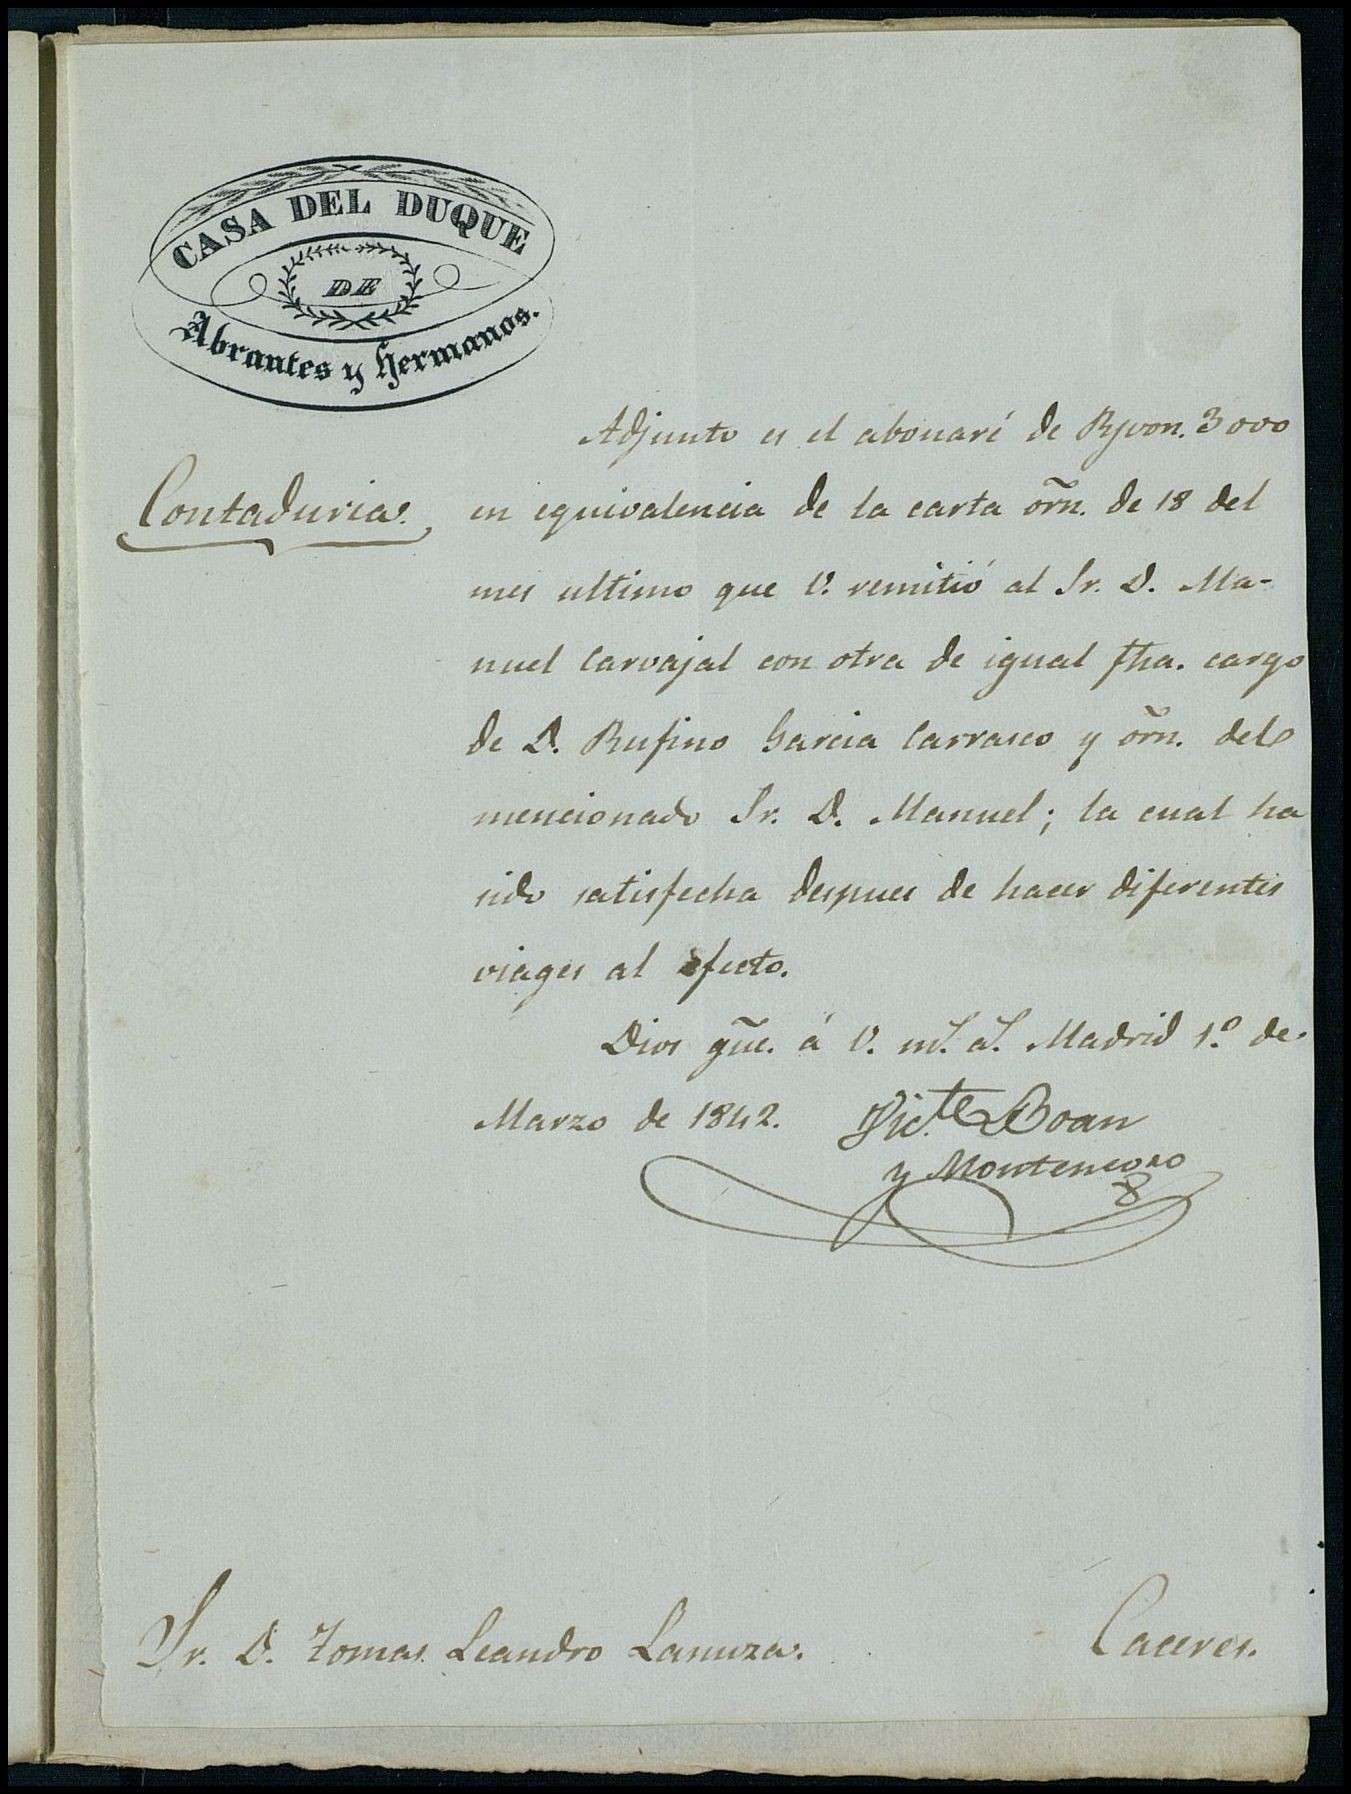 CASA DEL DUQUE
DE
Abrantes y Hermanos.
Adjunto es el abonaré de Rsvon. 3000
Contaduria.
en equivalencia de la carta orñ. de 18 del
mes ultimo que V. remitió al Sr. D. Ma-
nuel Carvajal con otra de igual fha. cargo
de D. Rufino Garcia Carrasco y orñ. del
mencionado Sr. D. Manuel; la cual ha
sido satisfecha despues de hacer diferentes
viages al efecto.
Dios gūe. á V. ms. as. Madrid 1.º de
Marzo de 1842. Vic.te Boan
y Montenegro
Sr. D. Tomas Leandro Lanuza.
Caceres.